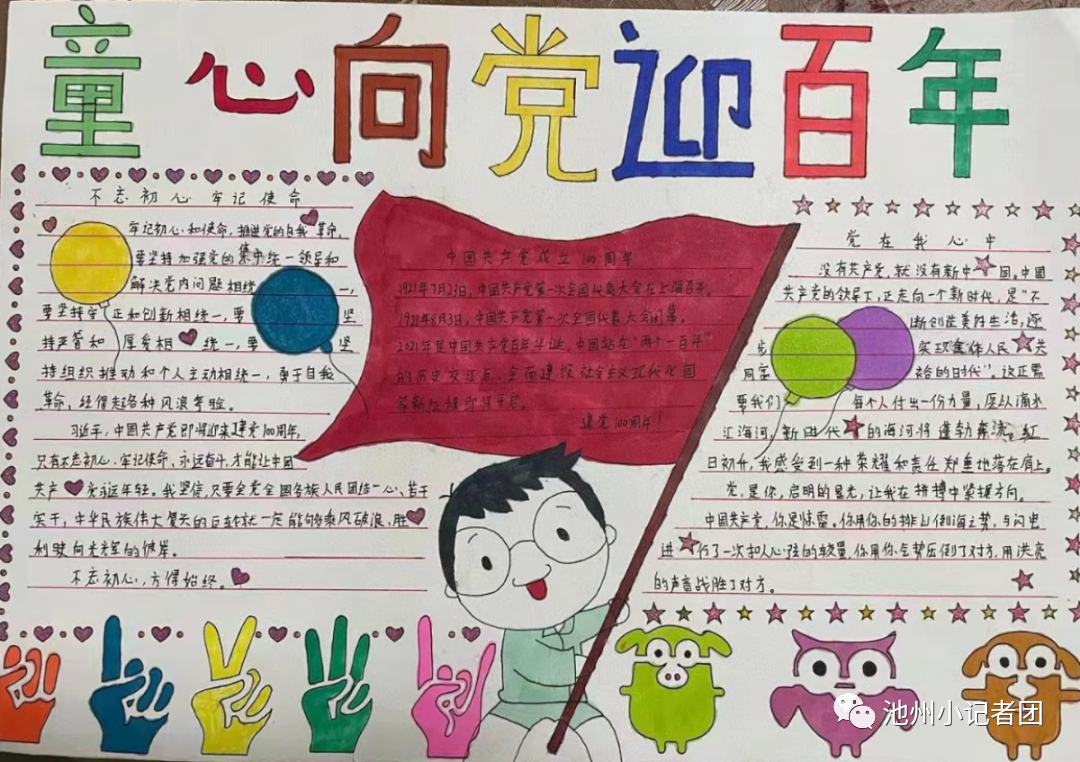 童心向党迎百年
不忘初心 牢记使命
牢记初心和使命，推进党的自我革命，
要坚持加强党的集中统一领导和
解决党内问题相统一，
要坚持守正和创新相统一，要坚
持严管和厚爱相统一，要坚
持组织推动和个人主动相统一，勇于自我
革命，经得起各种风浪考验。
习近平，中国共产党即将迎来建党100周年，
只有不忘初心、牢记使命、永远奋斗，才能让中国
共产党永远年轻。我坚信，只要全党全国各族人民团结一心、苦干
实干，中华民族伟大复兴的巨轮就一定能够乘风破浪、胜
利驶向光辉的彼岸。
不忘初心，方得始终。
中国共产党成立100周年
1921年7月23日，中国共产党第一次全国代表大会在上海召开。
1921年8月3日，中国共产党第一次全国代表大会闭幕。
2021年是中国共产党百年华诞。中国站在"两个一百年"
的历史交汇点，全面建设社会主义现代化国
家新征程即将开启。
建党100周年！
党在我心中
没有共产党，就没有新中国。中国
共产党的领导下，正走向一个新时代，是"不
断创造美好生活，逐
步实现全体人民共
同富裕的时代"。这正需
要我们每个人付出一份力量，愿从滴水
汇海河，新时代的海河将蓬勃奔流。红
日初升，我感受到一种荣耀和责任郑重地落在肩上。
党，是你，启明的星光，让我在拼搏中紧握方向。
中国共产党，你是惊雷。你用你的排山倒海之势，与闪电
进行了一次扣人心弦的较量，你用你气势压倒了对方，用洪亮
的声音战胜了对方。
池州小记者团